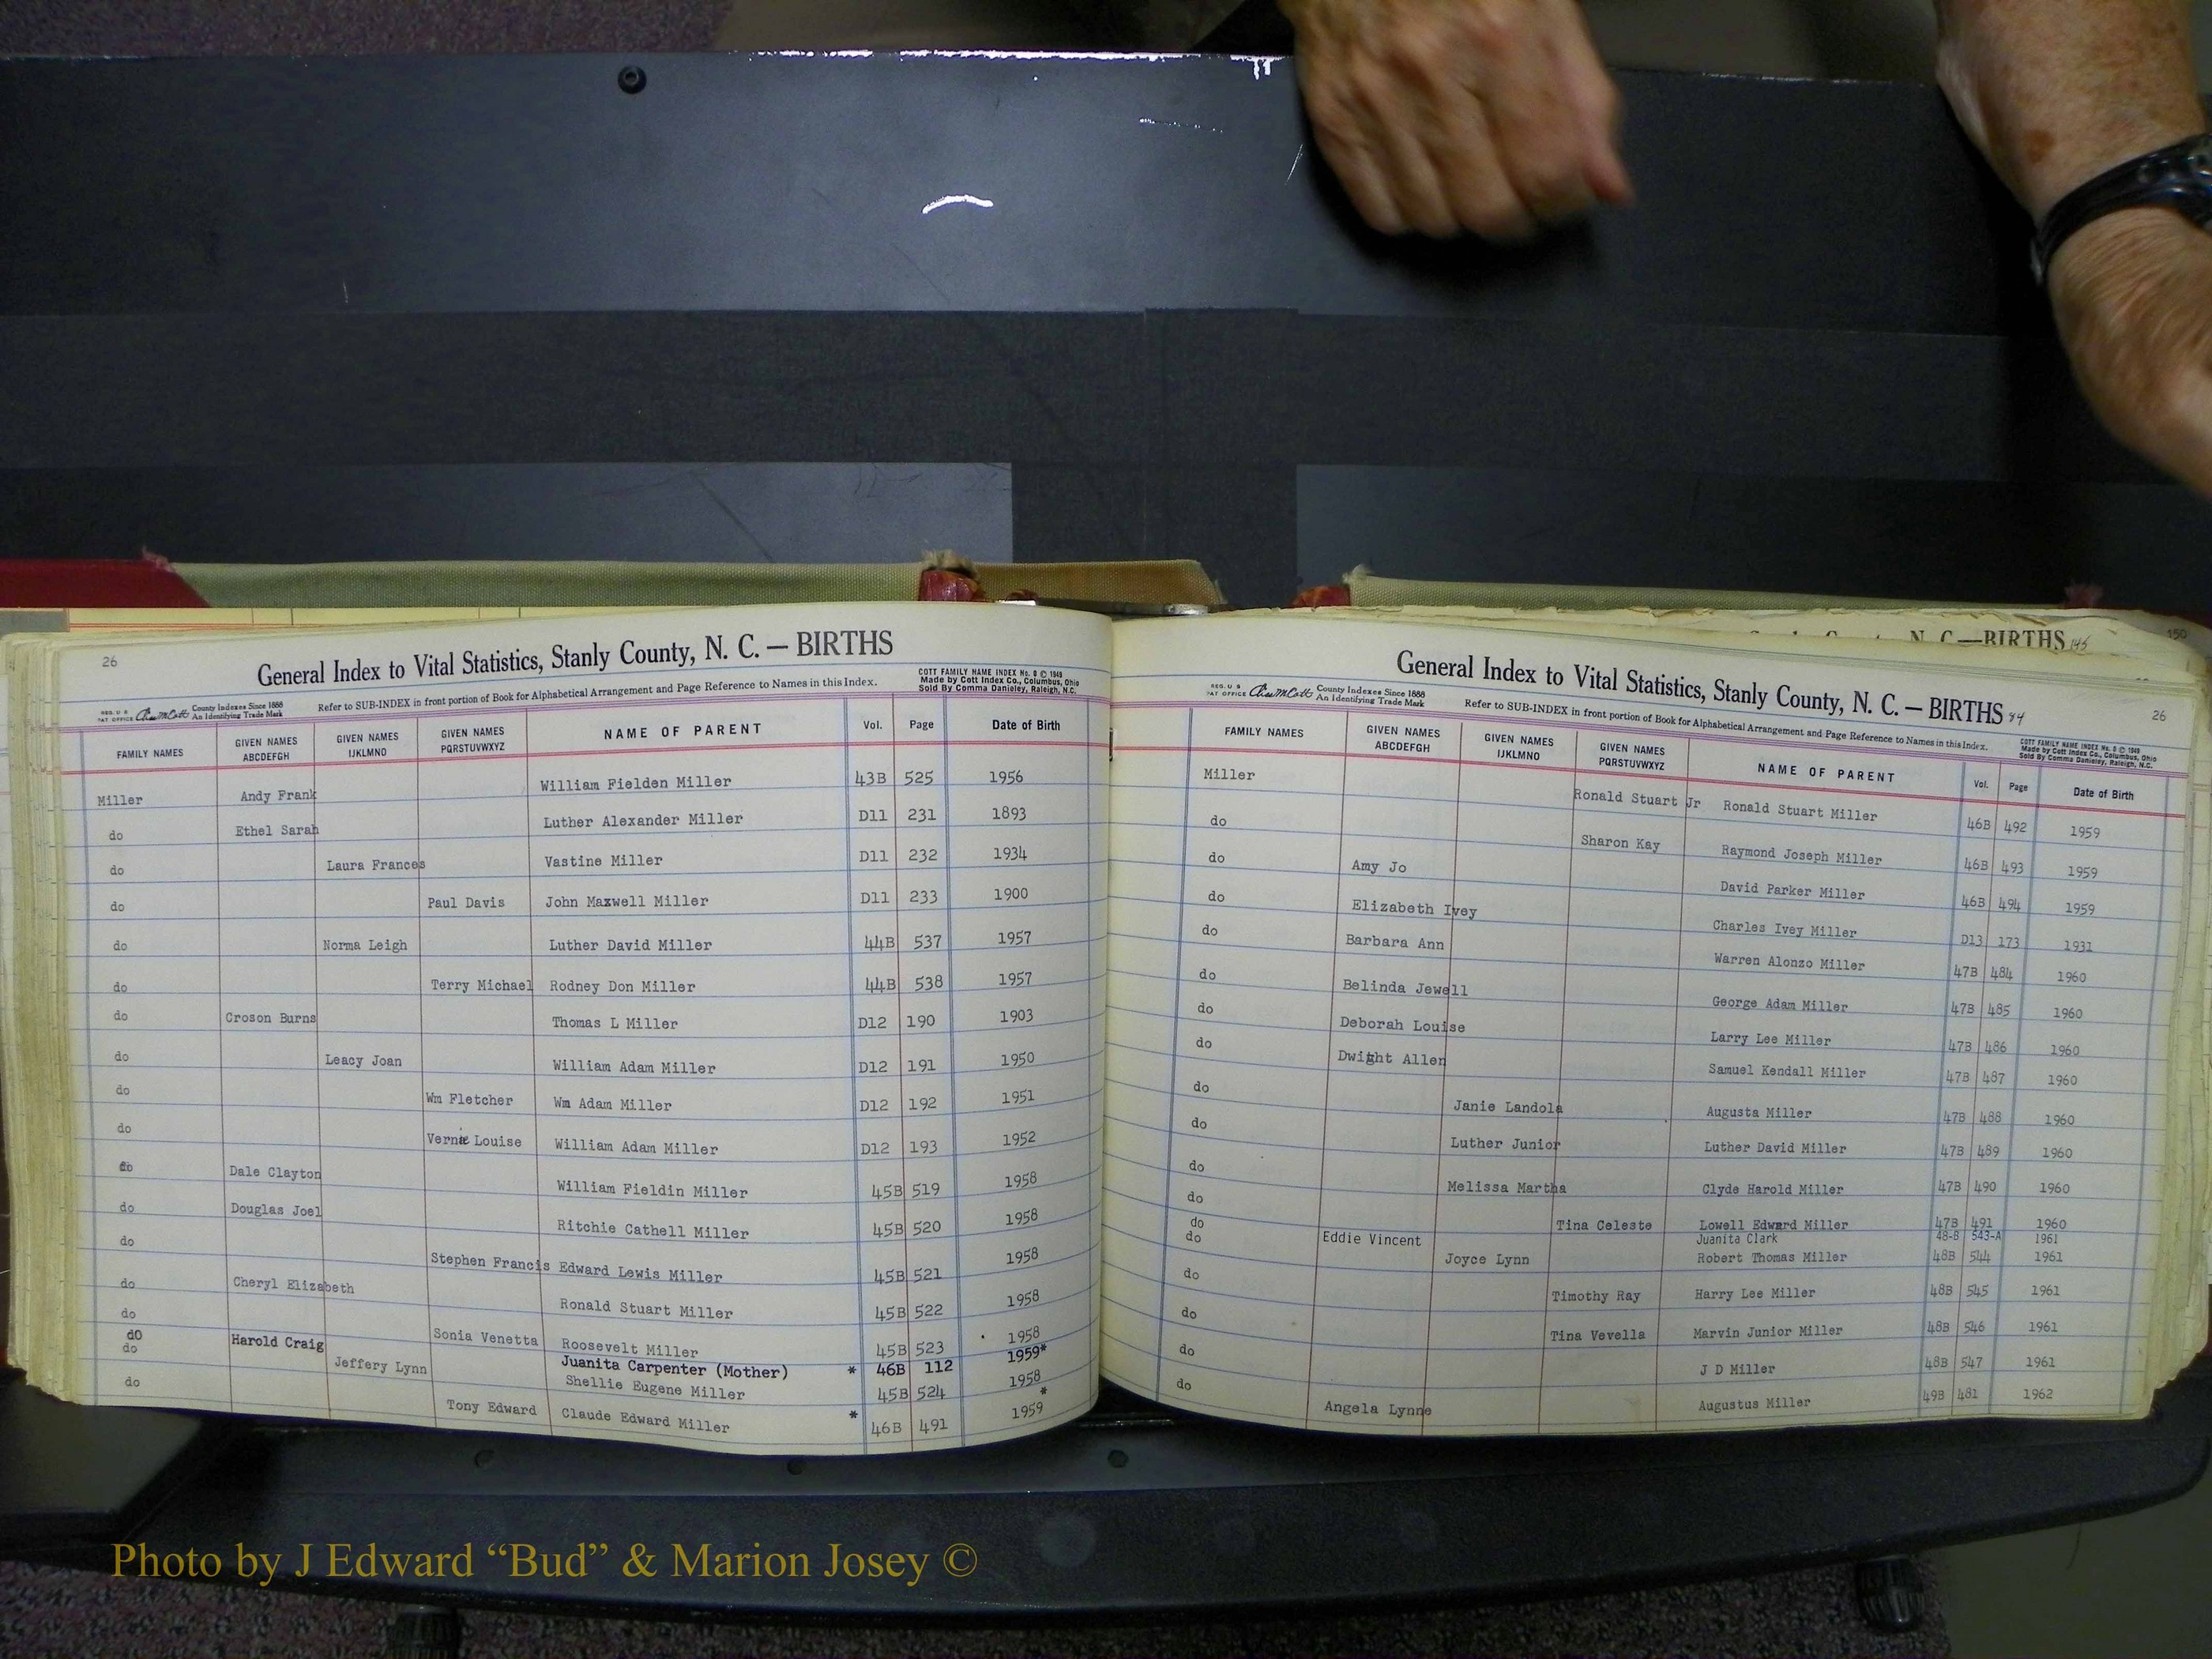 26
General Index to Vital Statistics, Stanly County, N. C. — BIRTHS
COTT FAMILY NAME INDEX No. 8 © 1949
Made by Cott Index Co., Columbus, Ohio
Sold By Comma Danieley, Raleigh, N.C.
REG. U S PAT OFFICE County Indexes Since 1888 An Identifying Trade Mark
Refer to SUB-INDEX in front portion of Book for Alphabetical Arrangement and Page Reference to Names in this Index.
FAMILY NAMES GIVEN NAMES ABCDEFGH GIVEN NAMES IJKLMNO GIVEN NAMES PQRSTUVWXYZ NAME OF PARENT Vol. Page Date of Birth
Miller Andy Frank William Fielden Miller 43B 525 1956
do Ethel Sarah Luther Alexander Miller D11 231 1893
do Laura Frances Vastine Miller D11 232 1934
do Paul Davis John Maxwell Miller D11 233 1900
do Norma Leigh Luther David Miller 44B 537 1957
do Terry Michael Rodney Don Miller 44B 538 1957
do Croson Burns Thomas L Miller D12 190 1903
do Leacy Joan William Adam Miller D12 191 1950
do Wm Fletcher Wm Adam Miller D12 192 1951
do Louise William Adam Miller D12 193 1952
do Dale Clayton William Fieldin Miller 45B 519 1958
do Douglas Joel Ritchie Cathell Miller 45B 520 1958
do Stephen Francis Edward Lewis Miller 45B 521 1958
do Cheryl Elizabeth Ronald Stuart Miller 45B 522 1958
do Sonia Venetta Roosevelt Miller 45B 523 1958
dO Harold Craig Juanita Carpenter (Mother) * 46B 112 1959*
do Jeffery Lynn Shellie Eugene Miller 45B 524 1958
do Tony Edward Claude Edward Miller * 46B 491 1959 *
N C — BIRTHS 145
150
General Index to Vital Statistics, Stanly County, N. C. — BIRTHS 44
26
REG. U S PAT OFFICE County Indexes Since 1888 An Identifying Trade Mark
Refer to SUB-INDEX in front portion of Book for Alphabetical Arrangement and Page Reference to Names in this Index.
COTT FAMILY NAME INDEX No. 8 © 1949
Made by Cott Index Co., Columbus, Ohio
Sold By Comma Danieley, Raleigh, N.C.
FAMILY NAMES GIVEN NAMES ABCDEFGH GIVEN NAMES IJKLMNO GIVEN NAMES PQRSTUVWXYZ NAME OF PARENT Vol. Page Date of Birth
Miller Ronald Stuart Jr Ronald Stuart Miller 46B 492 1959
do Sharon Kay Raymond Joseph Miller 46B 493 1959
do Amy Jo David Parker Miller 46B 494 1959
do Elizabeth Ivey Charles Ivey Miller D13 173 1931
do Barbara Ann Warren Alonzo Miller 47B 484 1960
do Belinda Jewell George Adam Miller 47B 485 1960
do Deborah Louise Larry Lee Miller 47B 486 1960
do Dwight Allen Samuel Kendall Miller 47B 487 1960
do Janie Landola Augusta Miller 47B 488 1960
do Luther Junior Luther David Miller 47B 489 1960
do Melissa Martha Clyde Harold Miller 47B 490 1960
do Tina Celeste Lowell Edward Miller 47B 491 1960
do Eddie Vincent Juanita Clark 48-B 543-A 1961
do Joyce Lynn Robert Thomas Miller 48B 544 1961
do Timothy Ray Harry Lee Miller 48B 545 1961
do Tina Vevella Marvin Junior Miller 48B 546 1961
do J D Miller 48B 547 1961
do Angela Lynne Augustus Miller 49B 481 1962
Photo by J Edward “Bud” & Marion Josey ©